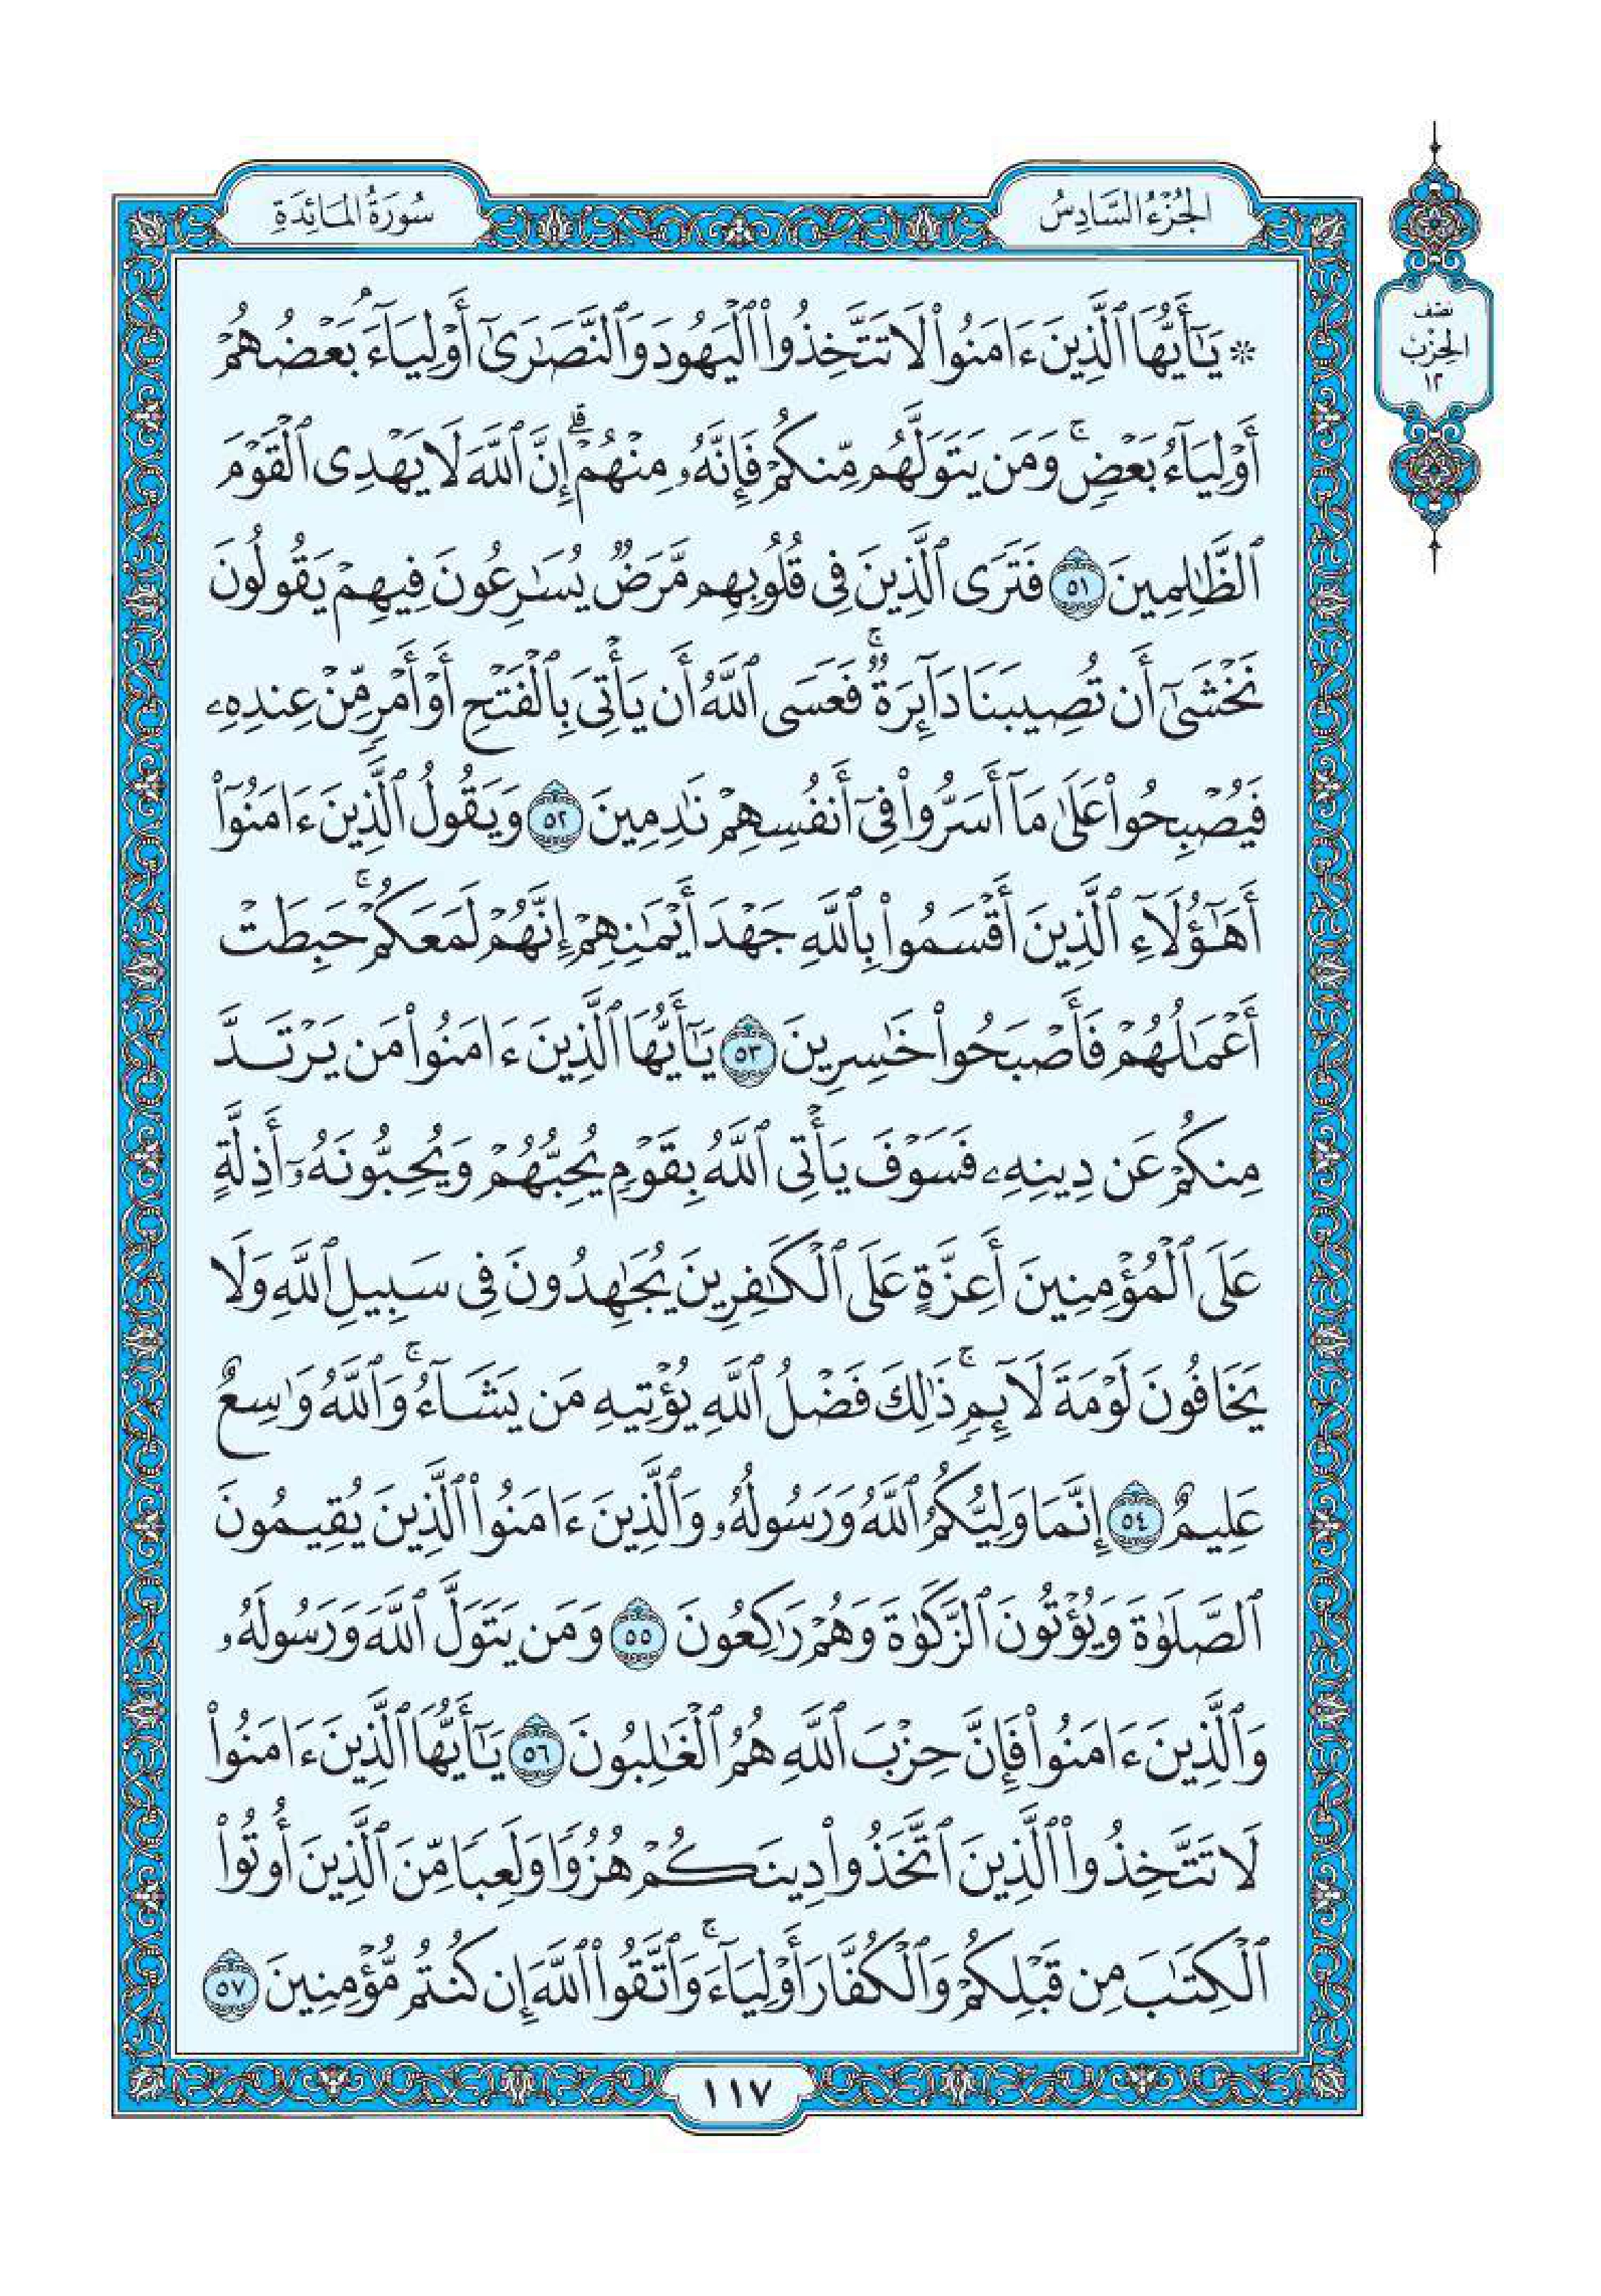 سُورَةُ المَائِدَةِ
الجُزْءُ السَّادِسُ
نصف
الحِزْب
١٢
* يَـٰٓأَيُّهَا ٱلَّذِينَ ءَامَنُوا۟ لَا تَتَّخِذُوا۟ ٱلْيَهُودَ وَٱلنَّصَـٰرَىٰٓ أَوْلِيَآءَ ۘ بَعْضُهُمْ
أَوْلِيَآءُ بَعْضٍ ۚ وَمَن يَتَوَلَّهُم مِّنكُمْ فَإِنَّهُۥ مِنْهُمْ ۗ إِنَّ ٱللَّهَ لَا يَهْدِى ٱلْقَوْمَ
ٱلظَّـٰلِمِينَ ٥١ فَتَرَى ٱلَّذِينَ فِى قُلُوبِهِم مَّرَضٌ يُسَـٰرِعُونَ فِيهِمْ يَقُولُونَ
نَخْشَىٰٓ أَن تُصِيبَنَا دَآئِرَةٌ ۚ فَعَسَى ٱللَّهُ أَن يَأْتِىَ بِٱلْفَتْحِ أَوْ أَمْرٍ مِّنْ عِندِهِۦ
فَيُصْبِحُوا۟ عَلَىٰ مَآ أَسَرُّوا۟ فِىٓ أَنفُسِهِمْ نَـٰدِمِينَ ٥٢ وَيَقُولُ ٱلَّذِينَ ءَامَنُوٓا۟
أَهَـٰٓؤُلَآءِ ٱلَّذِينَ أَقْسَمُوا۟ بِٱللَّهِ جَهْدَ أَيْمَـٰنِهِمْ إِنَّهُمْ لَمَعَكُمْ ۚ حَبِطَتْ
أَعْمَـٰلُهُمْ فَأَصْبَحُوا۟ خَـٰسِرِينَ ٥٣ يَـٰٓأَيُّهَا ٱلَّذِينَ ءَامَنُوا۟ مَن يَرْتَدَّ
مِنكُمْ عَن دِينِهِۦ فَسَوْفَ يَأْتِى ٱللَّهُ بِقَوْمٍ يُحِبُّهُمْ وَيُحِبُّونَهُۥٓ أَذِلَّةٍ
عَلَى ٱلْمُؤْمِنِينَ أَعِزَّةٍ عَلَى ٱلْكَـٰفِرِينَ يُجَـٰهِدُونَ فِى سَبِيلِ ٱللَّهِ وَلَا
يَخَافُونَ لَوْمَةَ لَآئِمٍ ۚ ذَٰلِكَ فَضْلُ ٱللَّهِ يُؤْتِيهِ مَن يَشَآءُ ۚ وَٱللَّهُ وَٰسِعٌ
عَلِيمٌ ٥٤ إِنَّمَا وَلِيُّكُمُ ٱللَّهُ وَرَسُولُهُۥ وَٱلَّذِينَ ءَامَنُوا۟ ٱلَّذِينَ يُقِيمُونَ
ٱلصَّلَوٰةَ وَيُؤْتُونَ ٱلزَّكَوٰةَ وَهُمْ رَٰكِعُونَ ٥٥ وَمَن يَتَوَلَّ ٱللَّهَ وَرَسُولَهُۥ
وَٱلَّذِينَ ءَامَنُوا۟ فَإِنَّ حِزْبَ ٱللَّهِ هُمُ ٱلْغَـٰلِبُونَ ٥٦ يَـٰٓأَيُّهَا ٱلَّذِينَ ءَامَنُوا۟
لَا تَتَّخِذُوا۟ ٱلَّذِينَ ٱتَّخَذُوا۟ دِينَكُمْ هُزُوًا وَلَعِبًا مِّنَ ٱلَّذِينَ أُوتُوا۟
ٱلْكِتَـٰبَ مِن قَبْلِكُمْ وَٱلْكُفَّارَ أَوْلِيَآءَ ۚ وَٱتَّقُوا۟ ٱللَّهَ إِن كُنتُم مُّؤْمِنِينَ ٥٧
١١٧